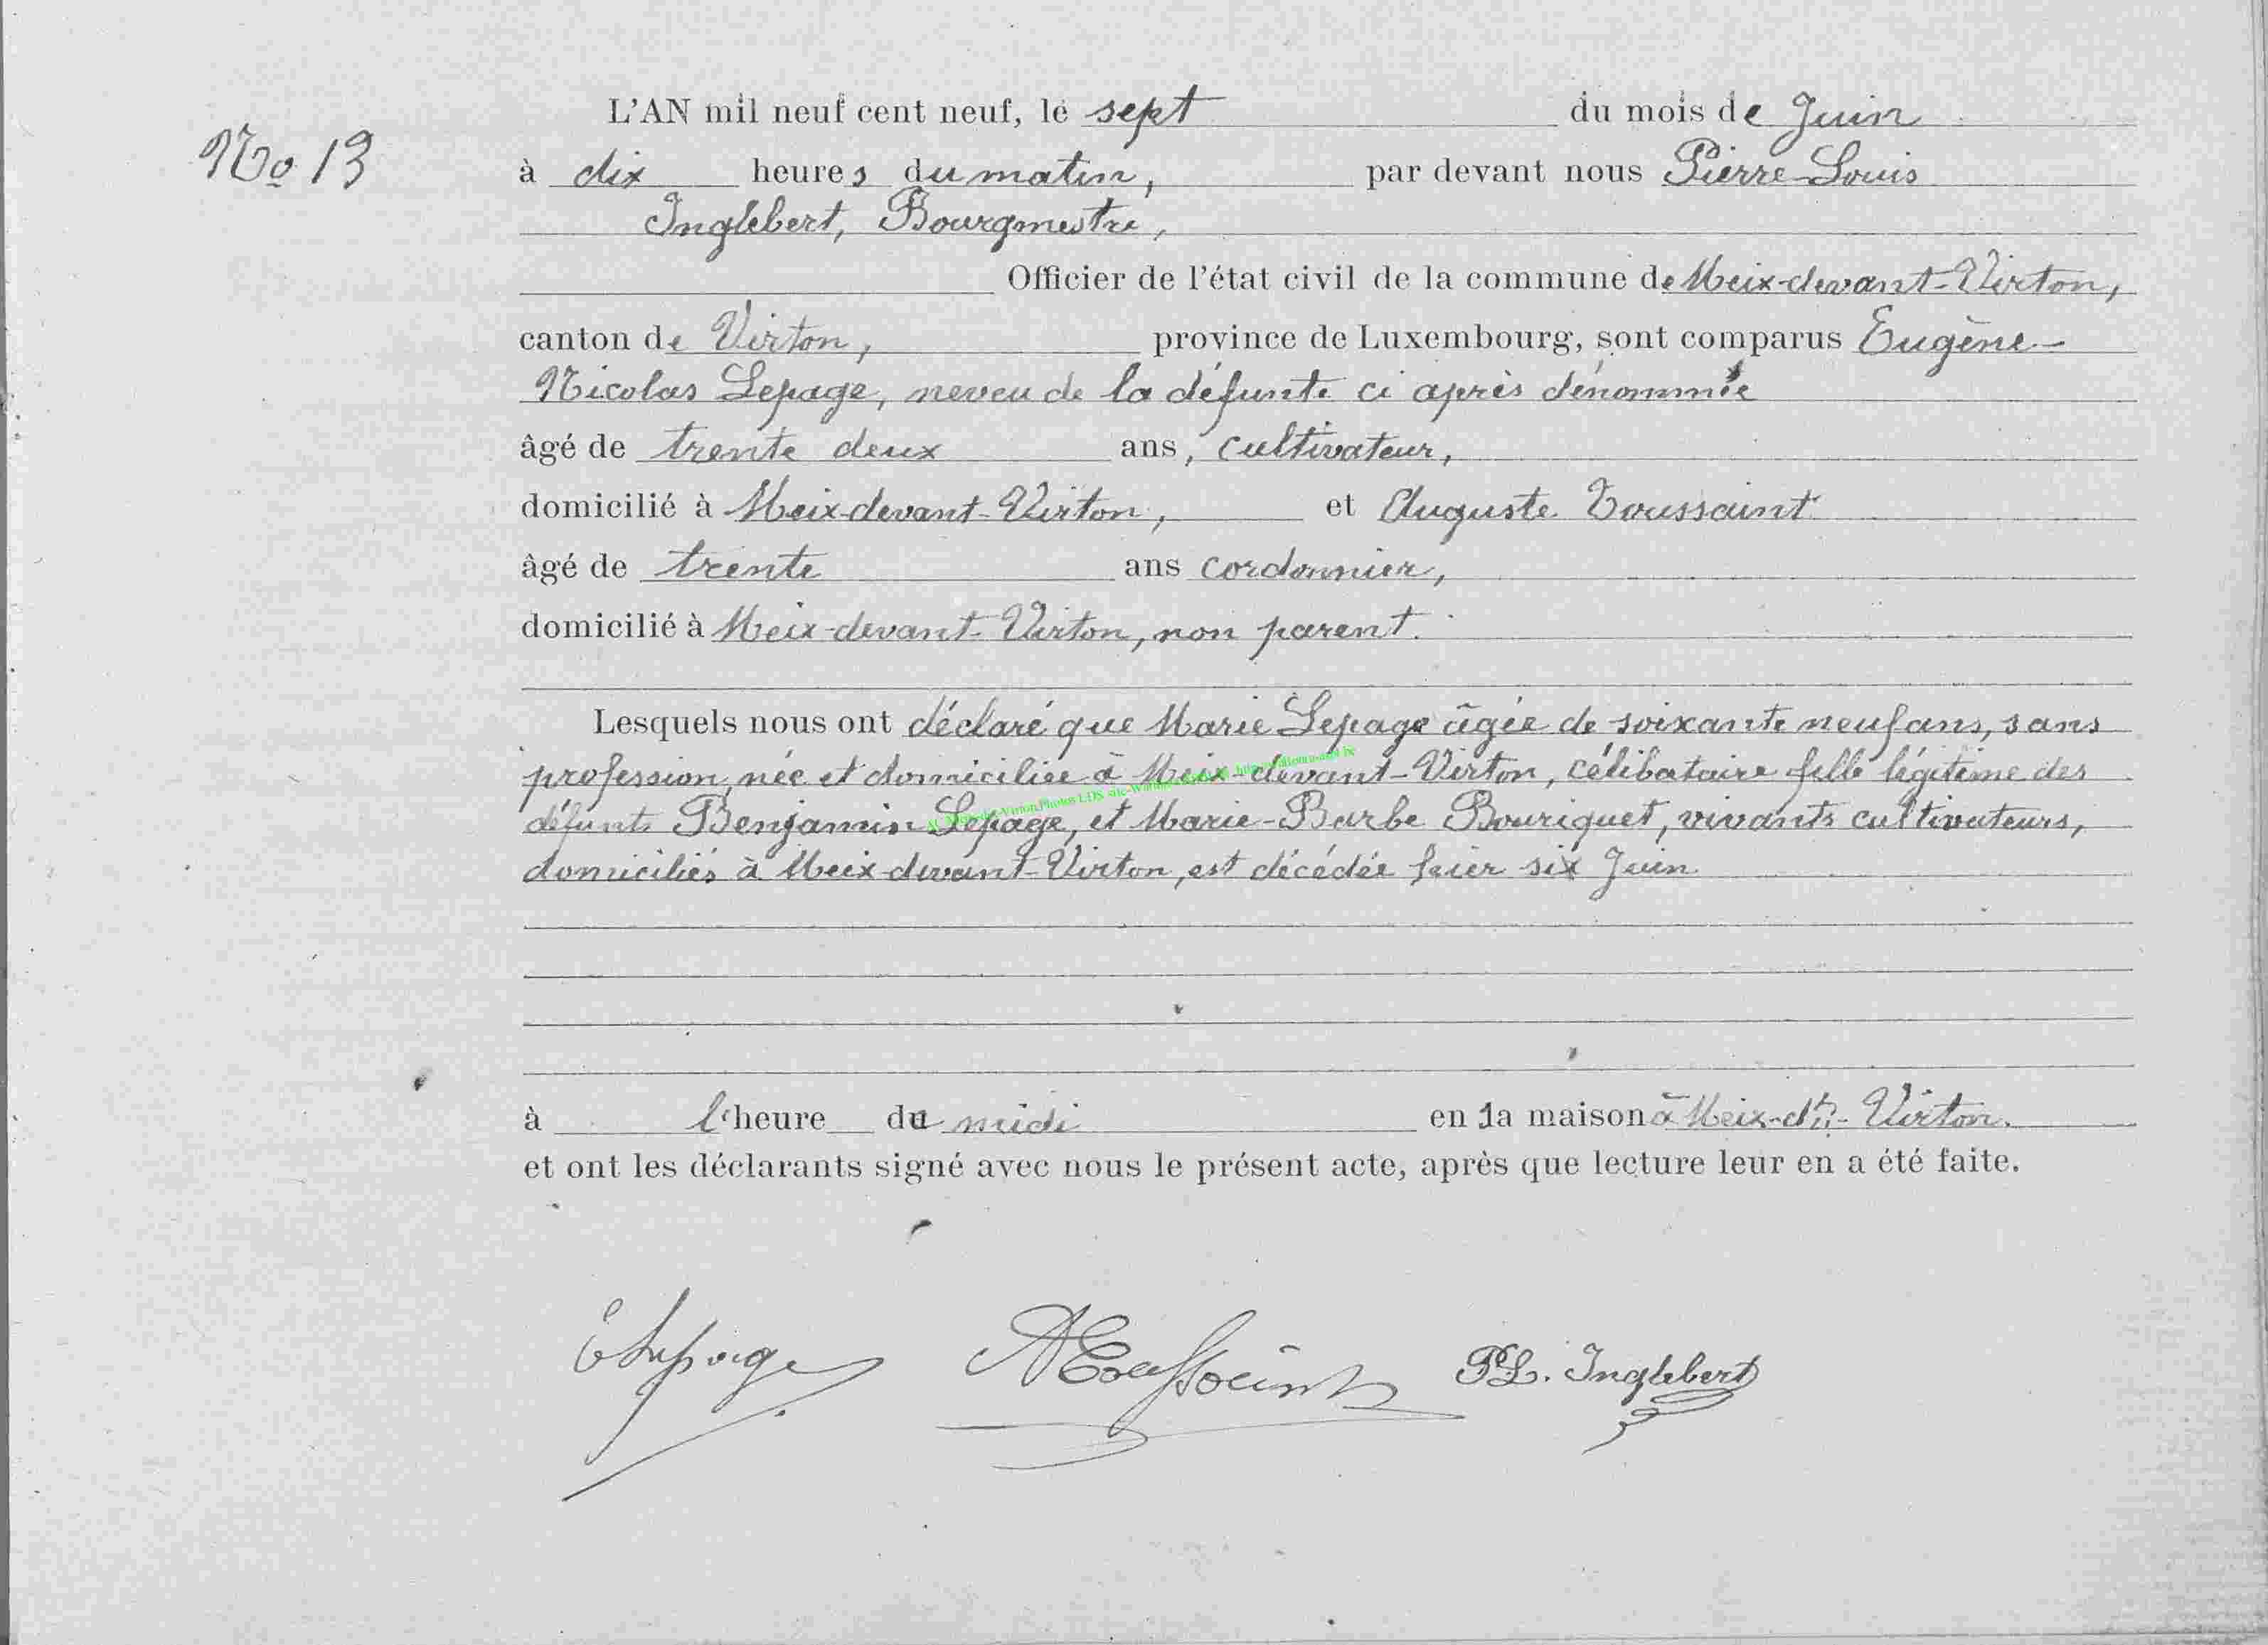 No 13
L'AN mil neuf cent neuf, le sept du mois de Juin
à dix heures du matin, par devant nous Pierre-Louis
Inglebert, Bourgmestre,
Officier de l'état civil de la commune de Meix-devant-Virton,
canton de Virton, province de Luxembourg, sont comparus Eugène-
Nicolas Lepage, neveu de la défunte ci après dénommée
âgé de trente deux ans, cultivateur,
domicilié à Meix-devant-Virton, et Auguste Toussaint
âgé de trente ans cordonnier,
domicilié à Meix-devant-Virton, non parent.
Lesquels nous ont déclaré que Marie Lepage âgée de soixante neuf ans, sans
profession, née et domiciliée à Meix-devant-Virton, célibataire fille légitime des
défunts Benjamin Lepage, et Marie-Barbe Bouriquet, vivants cultivateurs,
domiciliés à Meix-devant-Virton, est décédée hier six Juin
à l'heure du midi en la maison à Meix-dt-Virton.
et ont les déclarants signé avec nous le présent acte, après que lecture leur en a été faite.
E Lepage A Toussaint PL. Inglebert